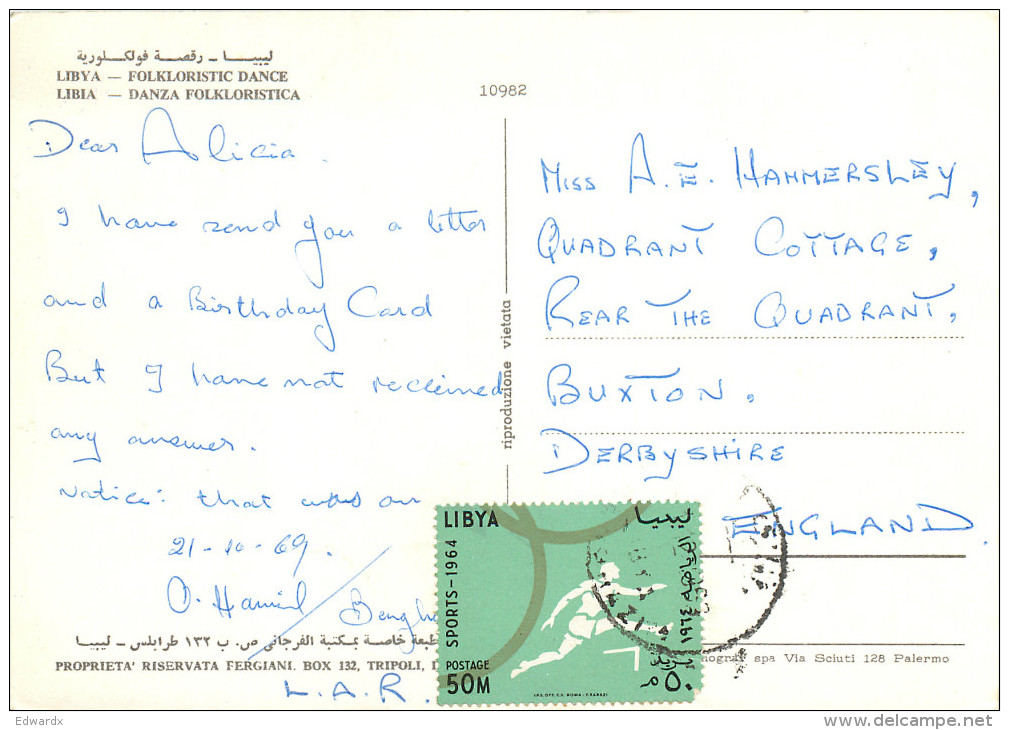 ليبيا - رقصة فولكلورية
LIBYA — FOLKLORISTIC DANCE
LIBIA — DANZA FOLKLORISTICA
10982
Dear Alicia.
I have send you a letter
and a Birthday Card
But I have not recieined
any answer.
Notice: that was on
21-10-69.
O. Hamid
L.A.R.
riproduzione vietata
MISS A.E. HAMMERSLEY,
QUADRANT COTTAGE,
REAR THE QUADRANT,
BUXTON,
DERBYSHIRE
ENGLAND.
LIBYA
ليبيا
SPORTS-1964
الرياضة ١٩٦٤
POSTAGE
50M
بريد
٥٠ م
طبعة خاصة بمكتبة الفرجاني ص. ب ١٣٢ طرابلس - ليبيا
PROPRIETA' RISERVATA FERGIANI. BOX 132, TRIPOLI,
spa Via Sciuti 128 Palermo
Edwardx
delcampe.net